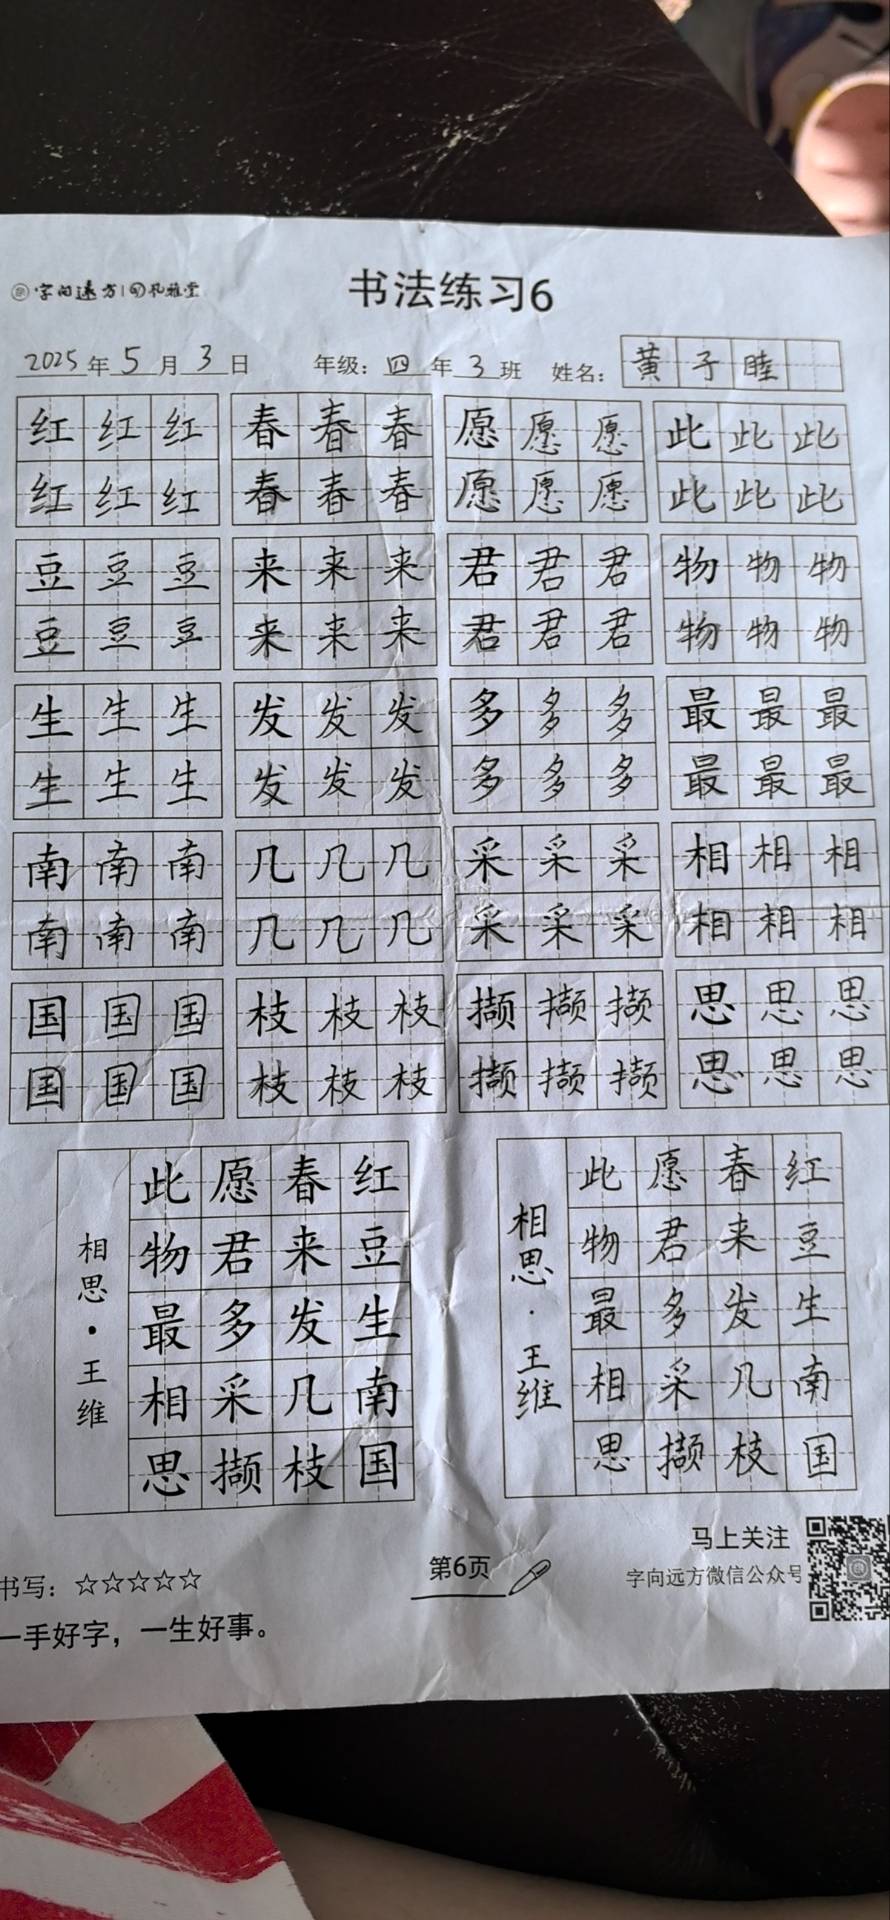 字向远方 孔雅堂
书法练习6
2025年5月3日 年级：四年3班 姓名：黄子睦
红红红 春春春 愿愿愿 此此此
红红红 春春春 愿愿愿 此此此
豆豆豆 来来来 君君君 物物物
豆豆豆 来来来 君君君 物物物
生生生 发发发 多多多 最最最
生生生 发发发 多多多 最最最
南南南 几几几 采采采 相相相
南南南 几几几 采采采 相相相
国国国 枝枝枝 撷撷撷 思思思
国国国 枝枝枝 撷撷撷 思思思
红豆生南国
春来发几枝
愿君多采撷
此物最相思
相思·王维
红豆生南国
春来发几枝
愿君多采撷
此物最相思
相思·王维
书写：☆☆☆☆☆
一手好字，一生好事。
第6页
马上关注
字向远方微信公众号